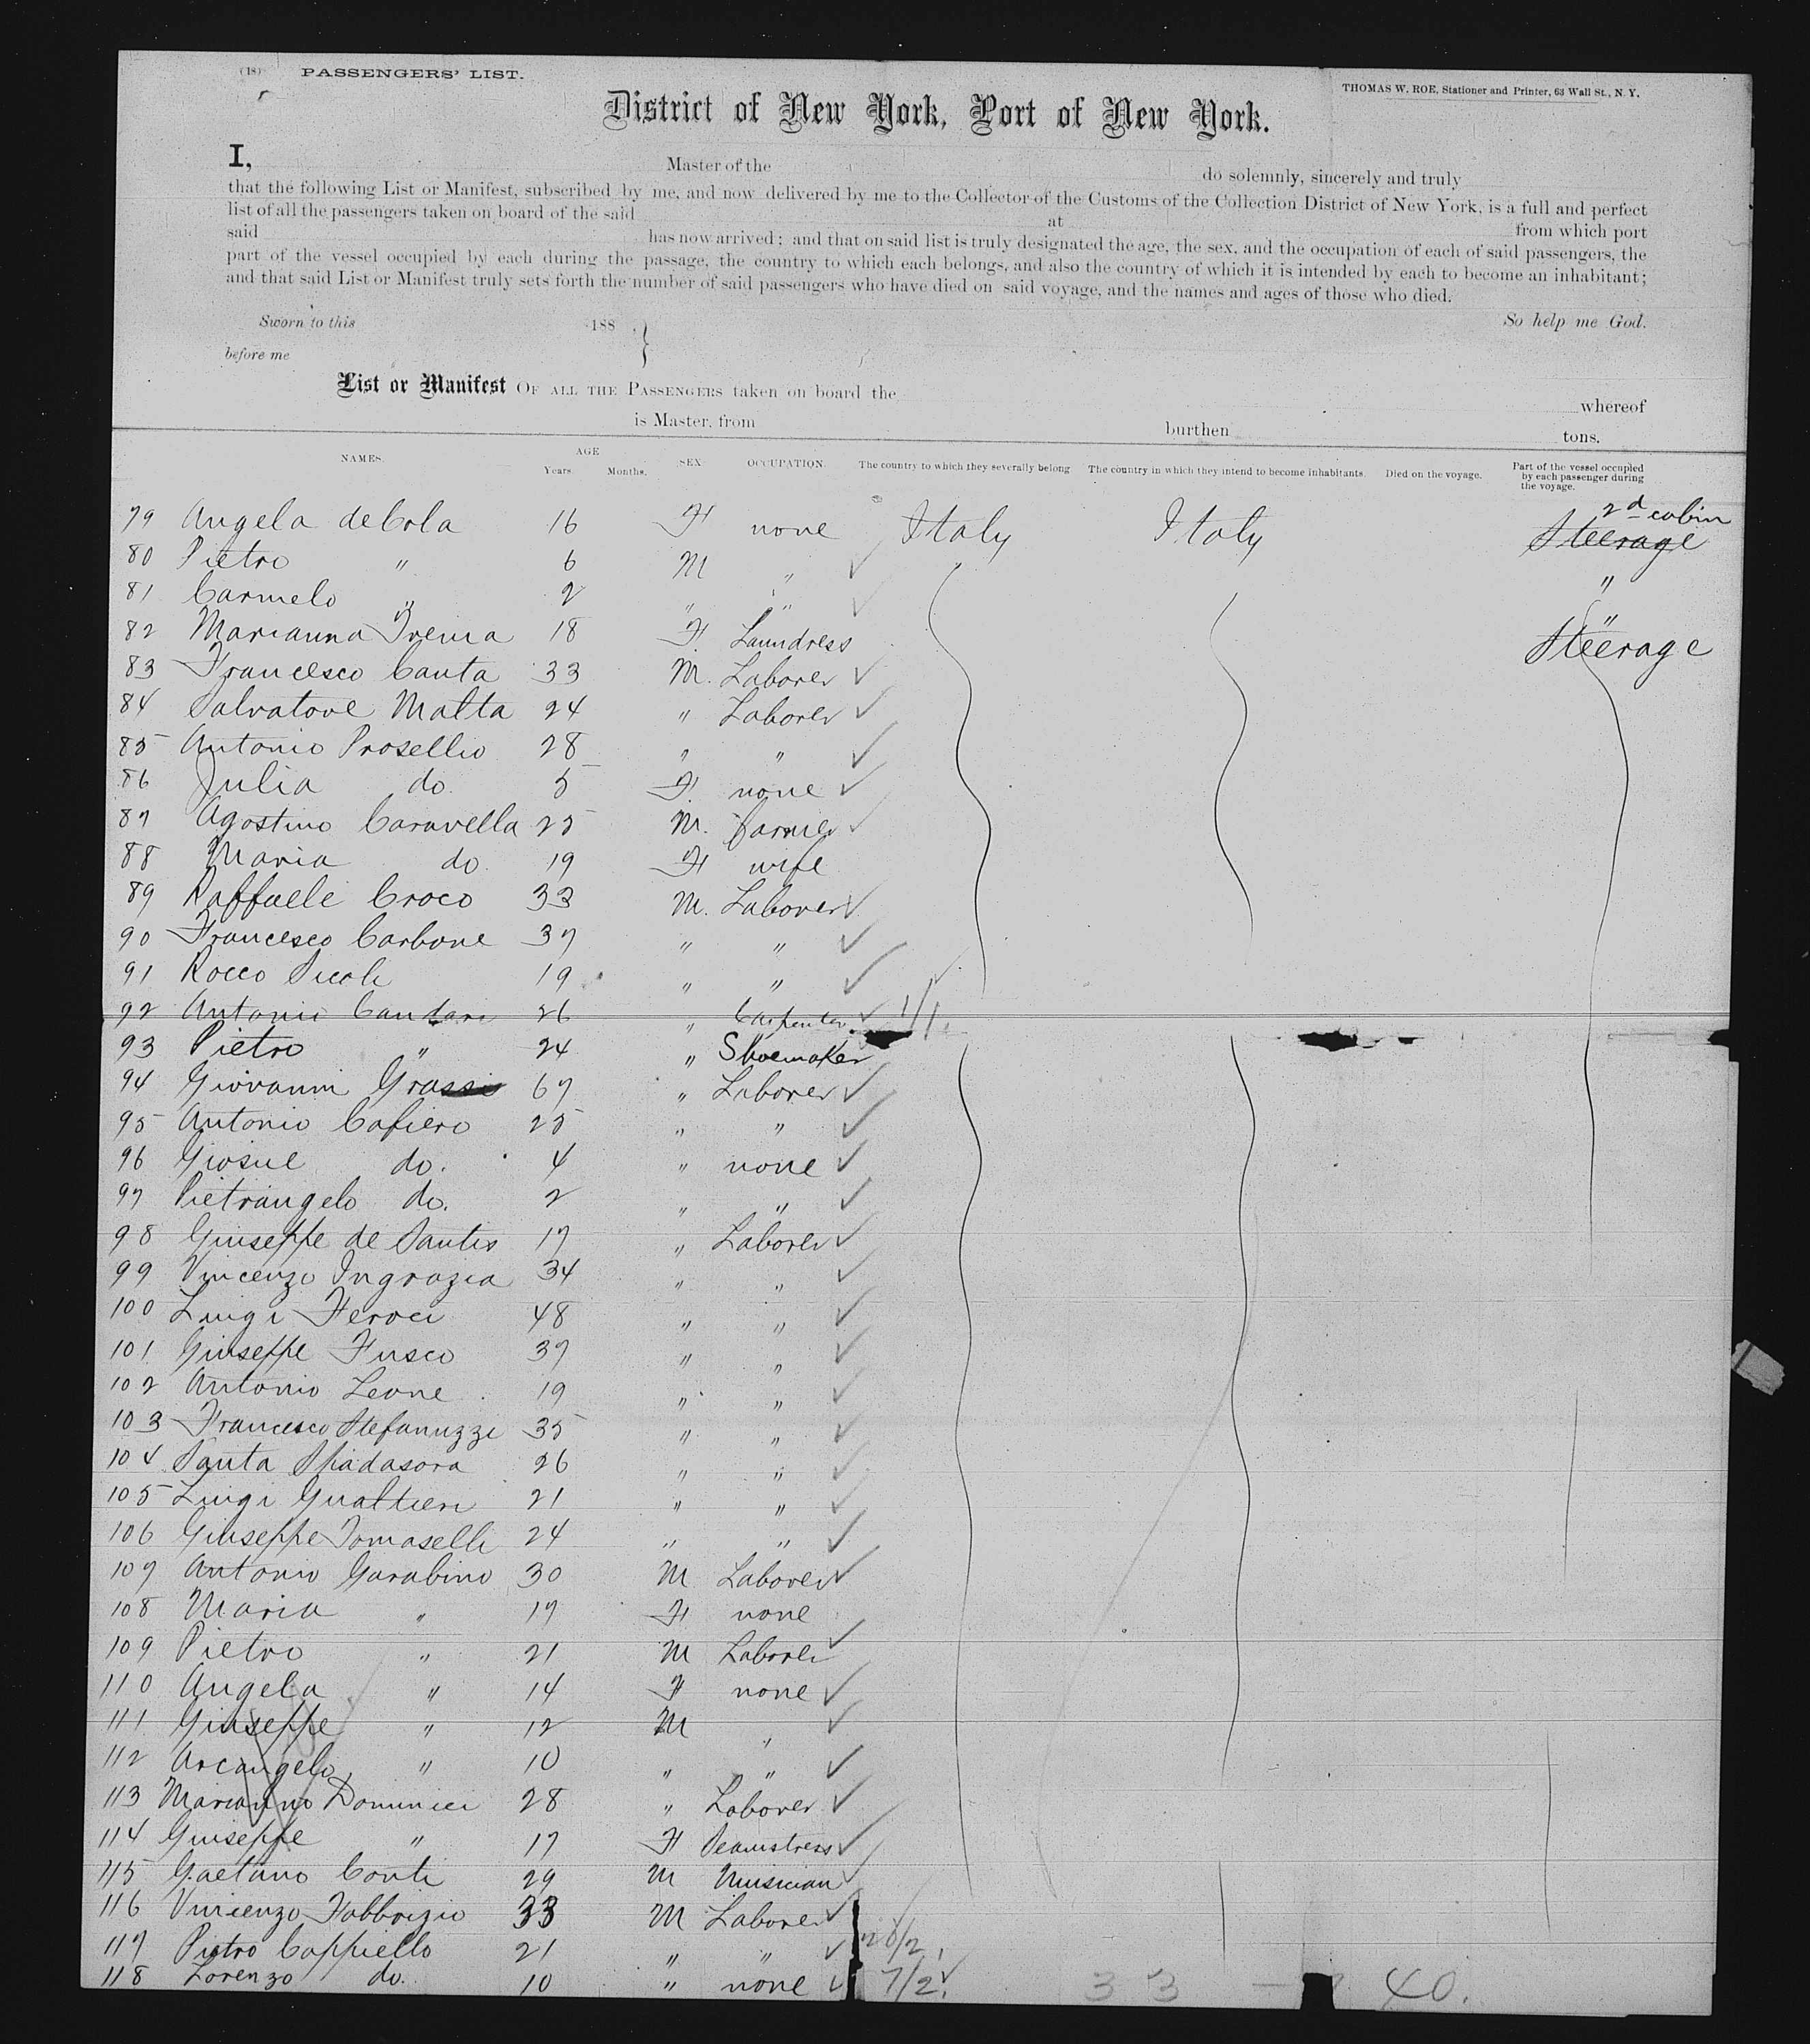 (18) PASSENGERS' LIST.
THOMAS W. ROE, Stationer and Printer, 63 Wall St., N. Y.
District of New York, Port of New York.
I, Master of the do solemnly, sincerely and truly
that the following List or Manifest, subscribed by me, and now delivered by me to the Collector of the Customs of the Collection District of New York, is a full and perfect
list of all the passengers taken on board of the said at from which port
said has now arrived; and that on said list is truly designated the age, the sex, and the occupation of each of said passengers, the
part of the vessel occupied by each during the passage, the country to which each belongs, and also the country of which it is intended by each to become an inhabitant;
and that said List or Manifest truly sets forth the number of said passengers who have died on said voyage, and the names and ages of those who died.
Sworn to this 188 . } So help me God.
before me
List or Manifest OF ALL THE PASSENGERS taken on board the whereof
is Master, from burthen tons.
NAMES. AGE Years. Months. SEX. OCCUPATION. The country to which they severally belong. The country in which they intend to become inhabitants. Died on the voyage. Part of the vessel occupied by each passenger during the voyage.
79 Angela deCola 16 F none Italy Italy 2d cabin Steerage
80 Pietro " 6 M " "
81 Carmelo " 2 " " "
82 Marianna 18 F. Laundress Steerage
83 Francesco Canta 33 M. Laborer
84 Salvatore Malta 24 " Laborer
85 Antonio Prosellio 28 " "
86 Julia do. 5 F. none
87 Agostino Caravella 25 M. farmer
88 Maria do. 19 F wife
89 Raffaele Croco 33 M. Laborer
90 Francesco Carbone 37 " "
91 Rocco 19 " "
92 Antonio Candari 26 " Carpenter 1/1.
93 Pietro " 24 " Shoemaker
94 Giovanni Grassi 67 " Laborer
95 Antonio Cafiero 25 " "
96 Giosue do. 4 " none
97 Pietrangelo do. 2 " "
98 Giuseppe de Santis 17 " Laborer
99 Vincenzo Ingrazia 34 " "
100 Luigi Feroci 48 " "
101 Giuseppe Fusco 37 " "
102 Antonio Leone 19 " "
103 Francesco Stefanuzzi 35 " "
104 Santa Spadasora 26 " "
105 Luigi Gualtieri 21 " "
106 Giuseppe Tomaselli 24 " "
107 Antonio Garabino 30 M Laborer
108 Maria " 17 F none
109 Pietro " 21 M Laborer
110 Angela " 14 F none
111 Giuseppe " 12 M "
112 Arcangelo " 10 " "
113 Marianno Dominici 28 " Laborer
114 Giuseppe " 17 F Seamstress
115 Gaetano Conti 29 M Musician
116 Vincenzo Fabbrizio 33 M Laborer
117 Pietro Cappiello 21 " "
118 Lorenzo do. 10 " none 7/2. 33 40.